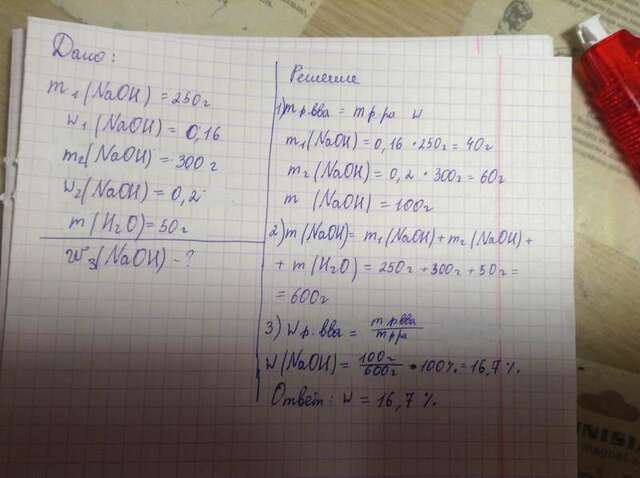 Дано:
m₁(NaOH) = 250г
w₁(NaOH) = 0,16
m₂(NaOH) = 300г
w₂(NaOH) = 0,2
m(H₂O) = 50г
w₃(NaOH) - ?
Решение
1) m р.вва = m р.ра w
m₁(NaOH) = 0,16 · 250г = 40г
m₂(NaOH) = 0,2 · 300г = 60г
m (NaOH) = 100г
2) m(NaOH) = m₁(NaOH) + m₂(NaOH) +
+ m(H₂O) = 250г + 300г + 50г =
= 600г
3) w р.вва = m р.вва / m р.ра
w(NaOH) = 100г / 600г · 100% = 16,7%
Ответ: w = 16,7%